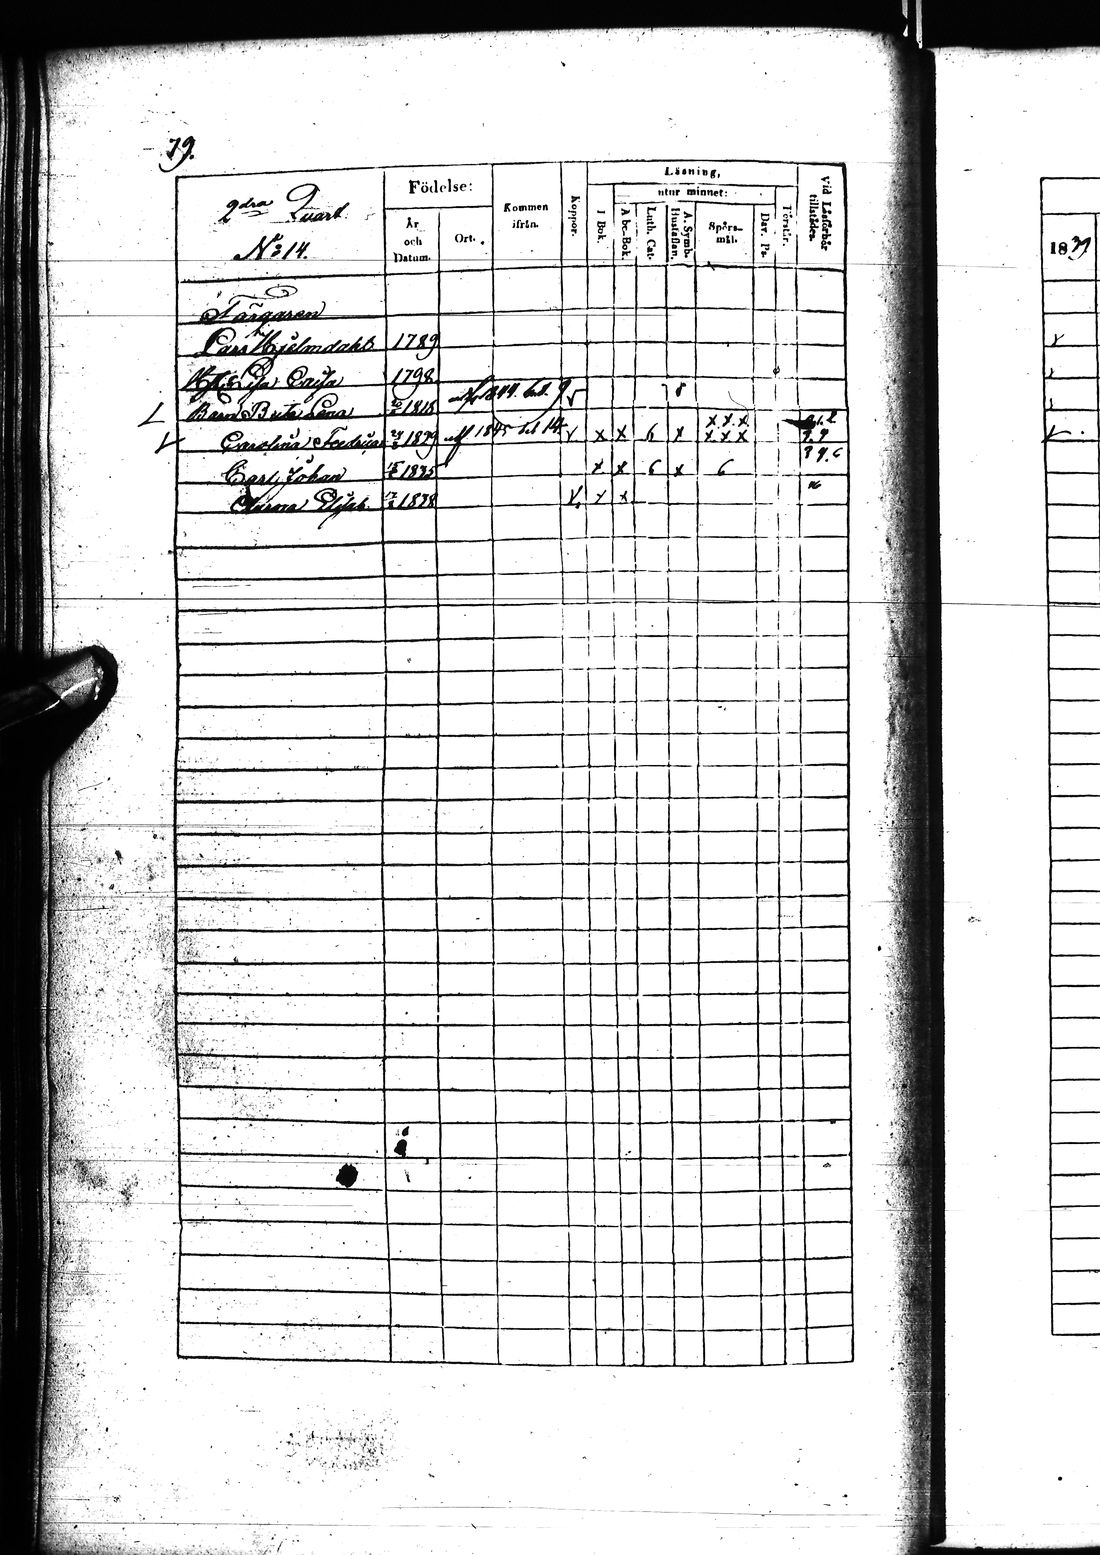 79.
2dra Quart.
No 14.
Födelse:
År och Datum.
Ort.
Kommen ifrån.
Koppor.
Läsning,
utur minnet:
I Bok.
Abc-Bok.
Luth. Cat.
A. Symb. Hustaflan.
Spörs-mål.
Dav. Ps.
Förstår.
Vid Läsförhör tillstädes.
1839
Färgaren
Lars Hjelmdahl 1789
Lisa Cajsa 1798
Barn Brita Lena 1818 1844 9 8
Carolina Fredrica 1829 1845 til 14 x x 6 x x x x 9.9
Carl Johan 1835 x x 6 x 6
Anna Elisab. 1838 x x